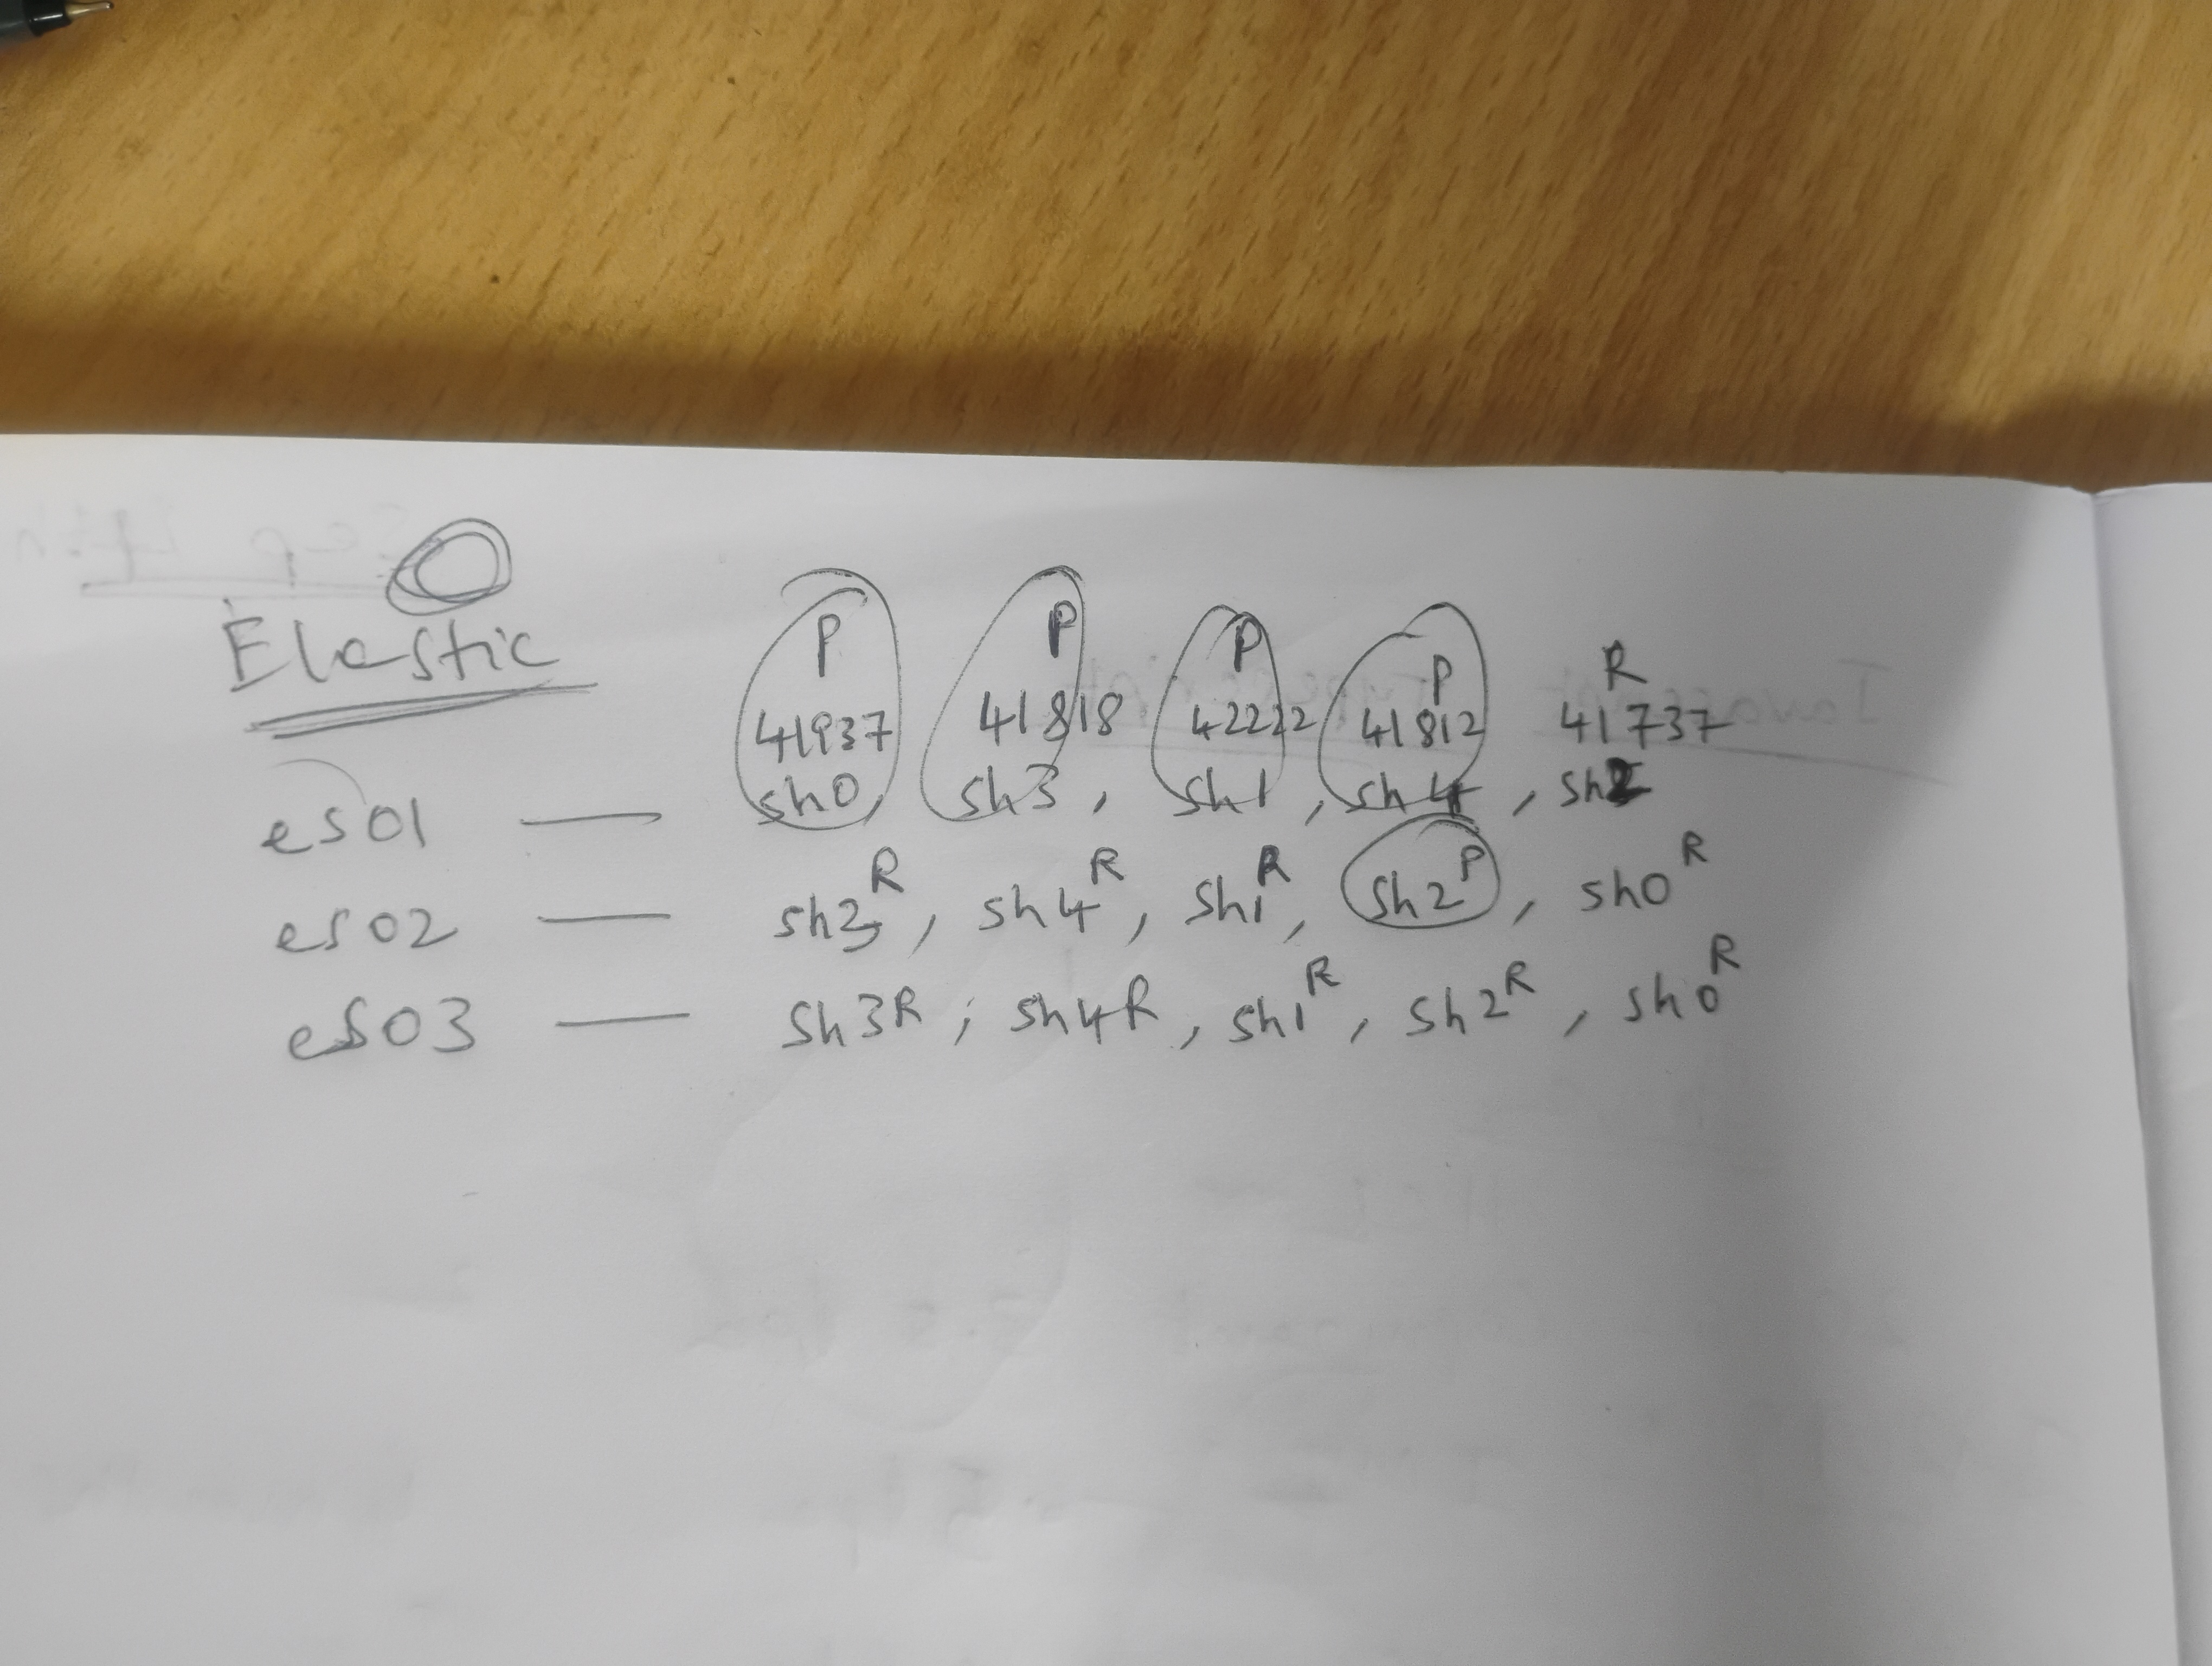 Elastic
P P P P R
41937 41818 42222 41812 41737
es01 — sh0, sh3, sh1, sh4, sh2
es02 — sh3R, sh4R, sh1R, sh2P, sh0R
es03 — sh3R, sh4R, sh1R, sh2R, sh0R